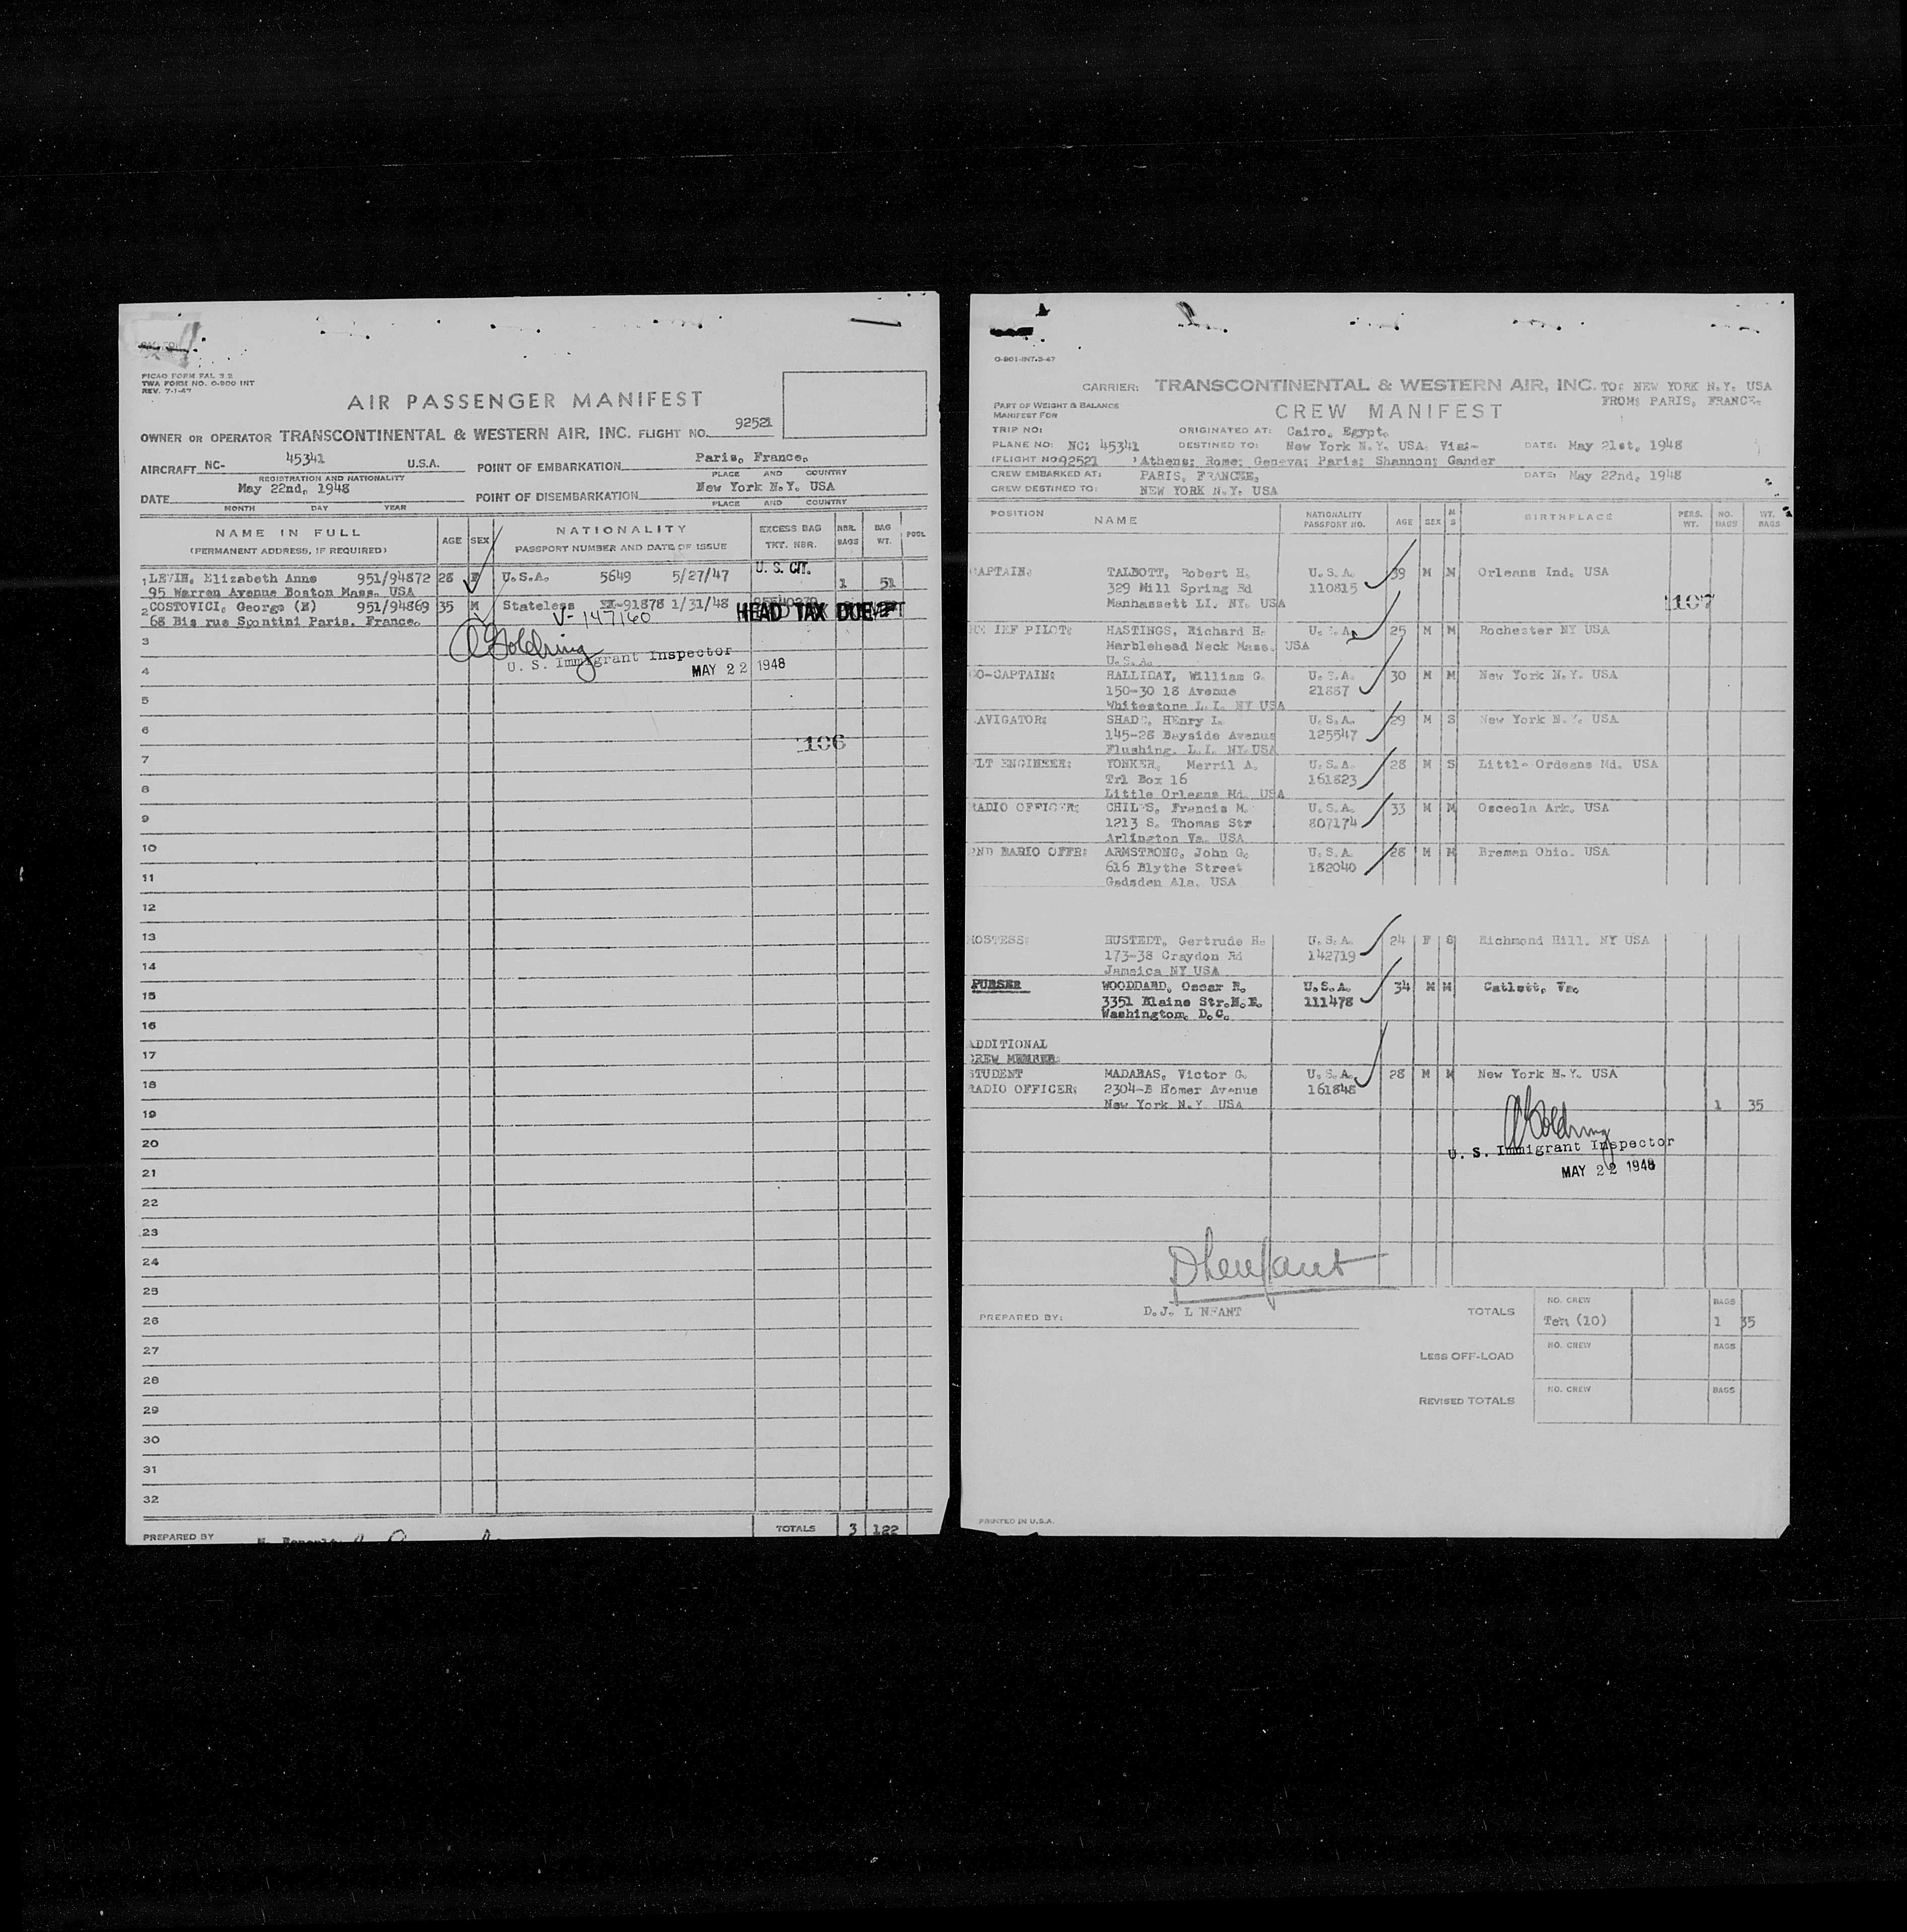 PICAO FORM FAL 3.2
TWA FORM NO. 0-900 INT
REV. 7-1-47
AIR PASSENGER MANIFEST
OWNER OR OPERATOR TRANSCONTINENTAL & WESTERN AIR, INC. FLIGHT NO. 92521
AIRCRAFT NC- 45341 U.S.A. POINT OF EMBARKATION Paris, France.
REGISTRATION AND NATIONALITY PLACE AND COUNTRY
DATE May 22nd, 1948 POINT OF DISEMBARKATION New York N.Y. USA
MONTH DAY YEAR PLACE AND COUNTRY
NAME IN FULL AGE SEX NATIONALITY EXCESS BAG NBR. BAG POOL
(PERMANENT ADDRESS, IF REQUIRED) PASSPORT NUMBER AND DATE OF ISSUE TKT. NBR. BAGS WT.
1 LEVIN, Elizabeth Anne 951/94872 28 F U.S.A. 5649 5/27/47 U.S. CIT. 1 51
95 Warren Avenue Boston Mass. USA
2 COSTOVICI, George (N) 951/94869 35 M Stateless 91878 1/31/48 HEAD TAX DUE
68 Bis rue Spontini Paris. France. V-147160
3
U. S. Immigrant Inspector
4 MAY 22 1948
5
6
106
7
8
9
10
11
12
13
14
15
16
17
18
19
20
21
22
23
24
25
26
27
28
29
30
31
32
PREPARED BY TOTALS 3 122
0-901-INT.3-47
CARRIER: TRANSCONTINENTAL & WESTERN AIR, INC. TO: NEW YORK N.Y. USA
FROM: PARIS, FRANCE.
PART OF WEIGHT & BALANCE
MANIFEST FOR CREW MANIFEST
TRIP NO: ORIGINATED AT: Cairo, Egypt.
PLANE NO: NC: 45341 DESTINED TO: New York N.Y. USA. Via:- DATE: May 21st, 1948
(FLIGHT NO: 92521 Athens; Rome; Geneva; Paris; Shannon; Gander
CREW EMBARKED AT: PARIS, FRANCEE, DATE: May 22nd, 1948
CREW DESTINED TO: NEW YORK N.Y. USA
POSITION NAME NATIONALITY PASSPORT NO. AGE SEX M S BIRTHPLACE PERS. WT. NO. BAGS WT. BAGS
APTAIN: TALBOTT, Robert H. U.S.A. 39 M M Orleans Ind. USA
329 Mill Spring Rd 110815
Manhassett LI. NY. USA 107
IEF PILOT: HASTINGS, Richard H. U.S.A. 25 M M Rochester NY USA
Marblehead Neck Mass. USA
U.S.A.
O-CAPTAIN: HALLIDAY, William G. U.S.A. 30 M M New York N.Y. USA
150-30 18 Avenue 21887
Whitestone L.I. NY USA
AVIGATOR: SHADE, HEnry I. U.S.A. 29 M S New York N.Y. USA
145-28 Bayside Avenue 125547
Flushing. L.I. NY.USA
LT ENGINEER: YONKER, Merril A. U.S.A. 28 M S Little Ordeans Md. USA
Trl Box 16 161823
Little Orleans Md. USA
RADIO OFFICER: CHILES, Francis M. U.S.A. 33 M M Osceola Ark. USA
1213 S. Thomas Str 807174
Arlington Va. USA
2ND RARIO OFFR: ARMSTRONG, John G. U.S.A. 28 M M Bremen Ohio. USA
616 Blythe Street 182040
Gadsden Ala. USA
HOSTESS: HUSTEDT, Gertrude H. U.S.A. 24 F S Richmond Hill. NY USA
173-38 Craydon Rd 142719
Jamaica NY USA
PURSER WOODDARD, Oscar R. U.S.A. 34 M M Catlett, Va.
3351 Blaine Str.N.E. 111478
Washington. D.C.
ADDITIONAL
CREW MEMBER:
STUDENT MADARAS, Victor G. U.S.A. 28 M M New York N.Y. USA
RADIO OFFICER: 2304-B Homer Avenue 161848
New York N.Y USA 1 35
U. S. Immigrant Inspector
MAY 22 1948
PREPARED BY: D.J. L NFANT
TOTALS NO. CREW Ten (10) BAGS 1 35
LESS OFF-LOAD NO. CREW BAGS
REVISED TOTALS NO. CREW BAGS
PRINTED IN U.S.A.